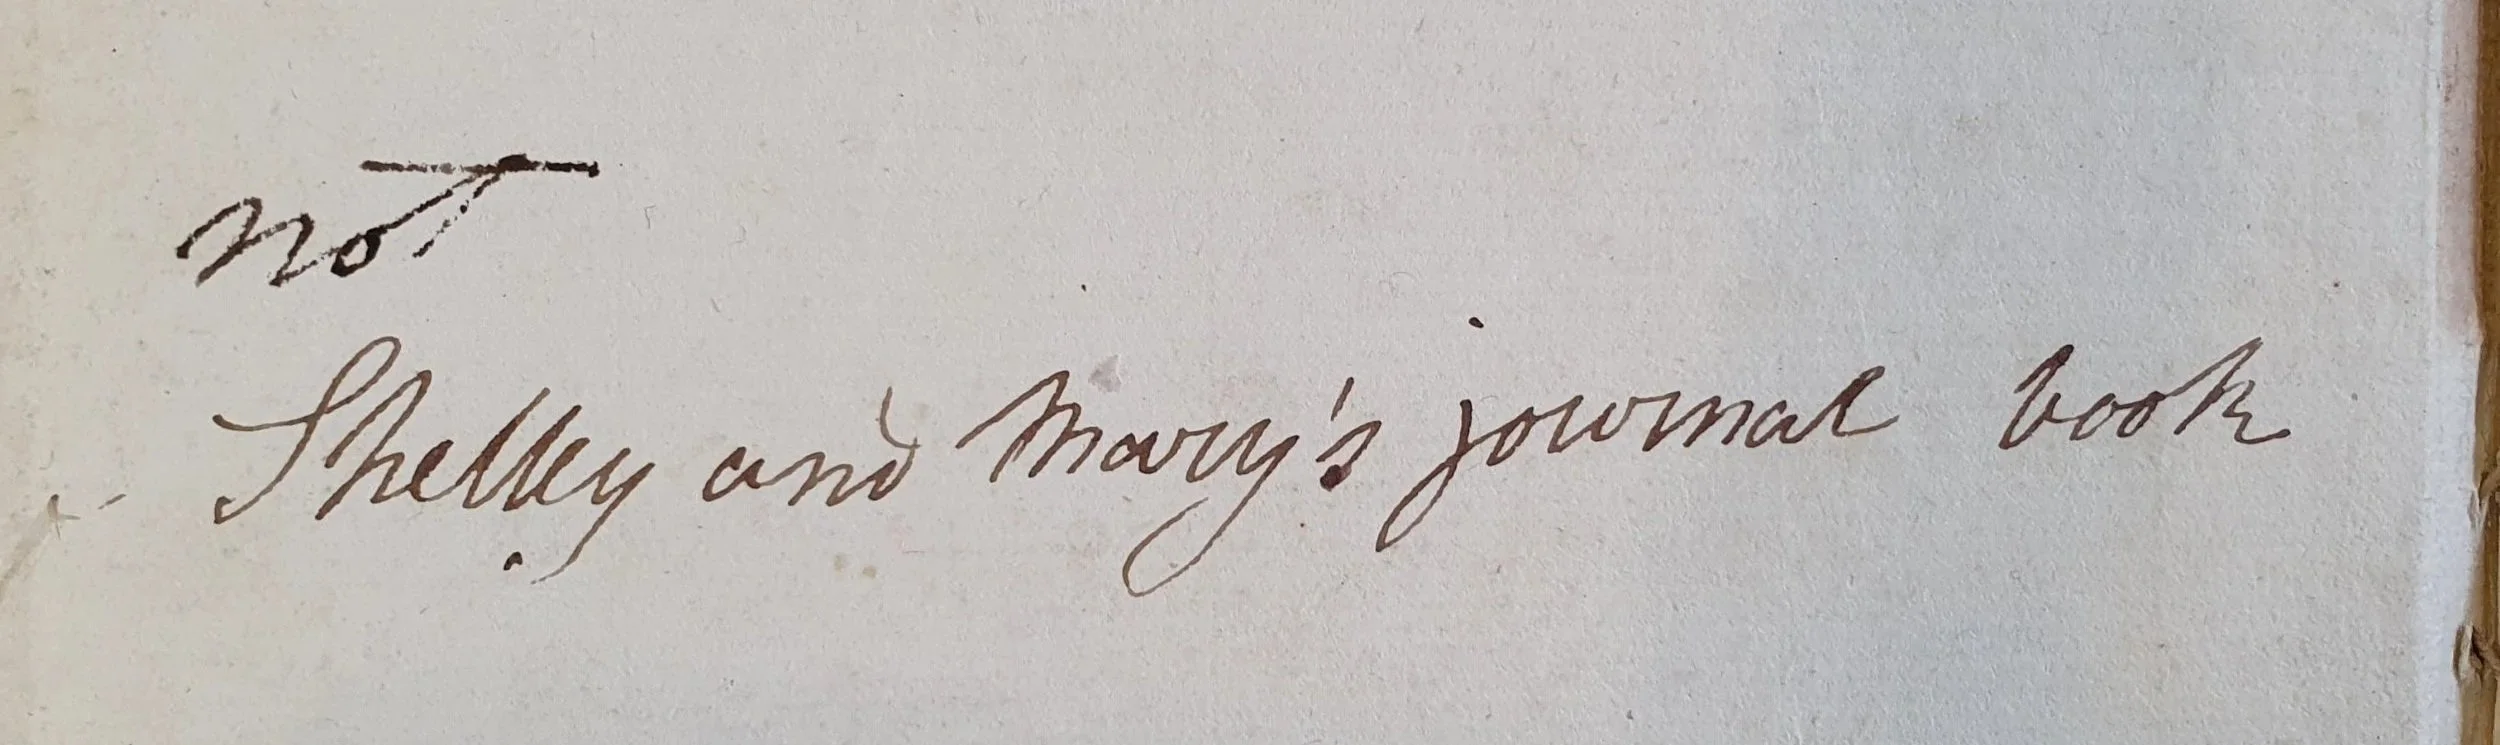 not
Shelley and Mary's journal book